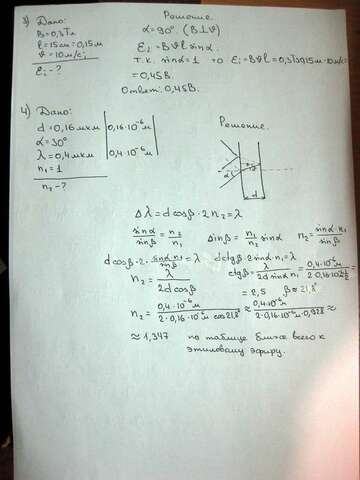 3) Дано:
B = 0,3Тл
l = 15см = 0,15м
υ = 10м/с;
Ei - ?
Решение.
α = 90°. (B⊥υ)
Ei = Bυl sinα.
т.к. sinα = 1 то Ei = Bυl = 0,3Тл·0,15м·10м/с=
= 0,45В.
Ответ: 0,45В.
4) Дано:
d = 0,16мкм | 0,16·10⁻⁶м
α = 30°
λ = 0,4мкм | 0,4·10⁻⁶м
n₁ = 1
n₂ - ?
Решение.
α
d
Δλ = d cosβ · 2n₂ = λ
sinα/sinβ = n₂/n₁ sinβ = n₁/n₂ sinα n₂ = sinα n₁/sinβ
d cosβ · 2 · sinα n₁/sinβ = λ d ctgβ · 2 sinα · n₁ = λ
n₂ = λ/2d cosβ ctgβ = λ/2d sinα n₁ =
= 2,5 β ≈ 21,8°
n₂ = 0,4·10⁻⁶м/2·0,16·10⁻⁶м cos21,8° ≈ 0,4·10⁻⁶м/2·0,16·10⁻⁶м·0,928 ≈
≈ 1,347 по таблице ближе всего к
этиловому эфиру.